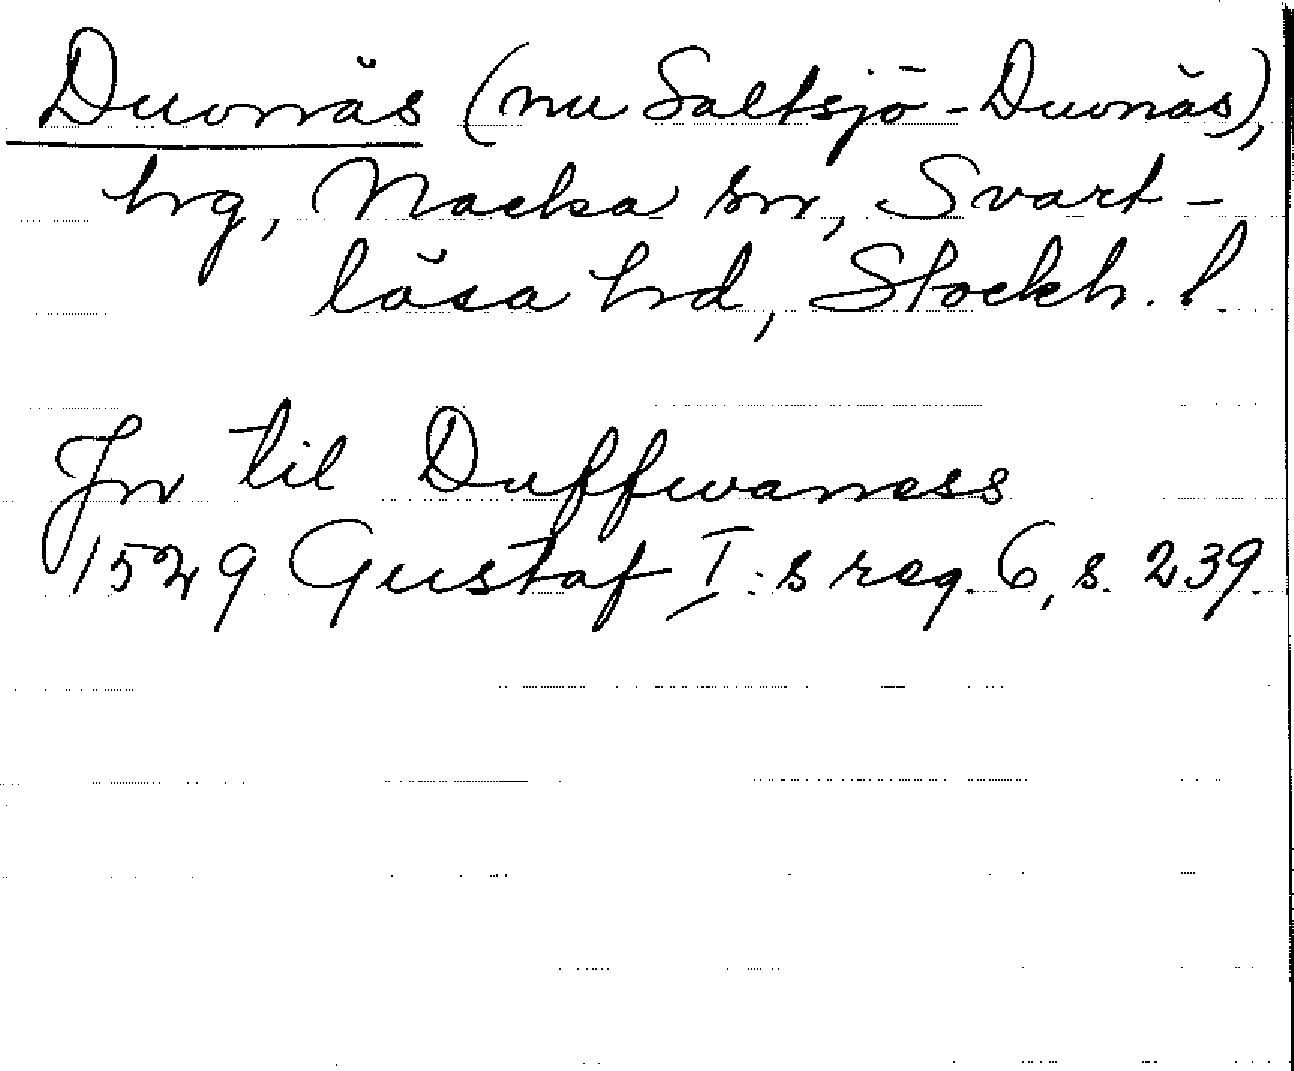 Duvnäs (nu Saltsjö-Duvnäs),
hrg, Nacka sn, Svart-
lösa hd, Stockh. l
Jn til Duffwaness
1529 Gustaf I:s reg. 6, s. 239